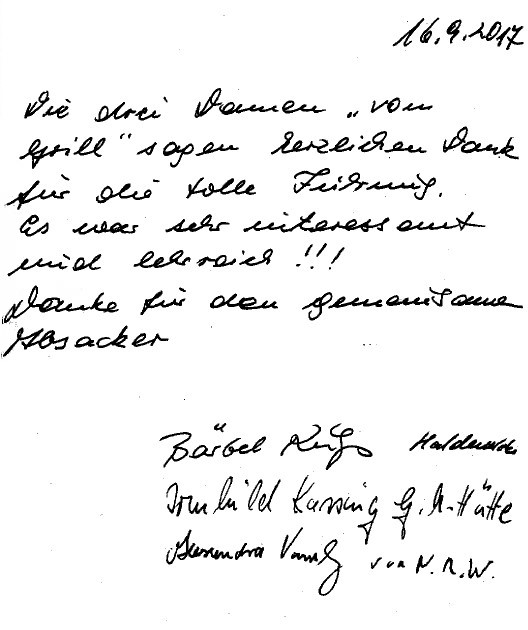 16.9.2017
Die drei Damen „vom
Grill" sagen herzlichen Dank
für die tolle Führung.
Es war sehr interessant
und lehrreich !!!
Danke für den gemeinsamen
Absacker
Bärbel
Irmhild Kassing G.M.Hütte
von N.R.W.